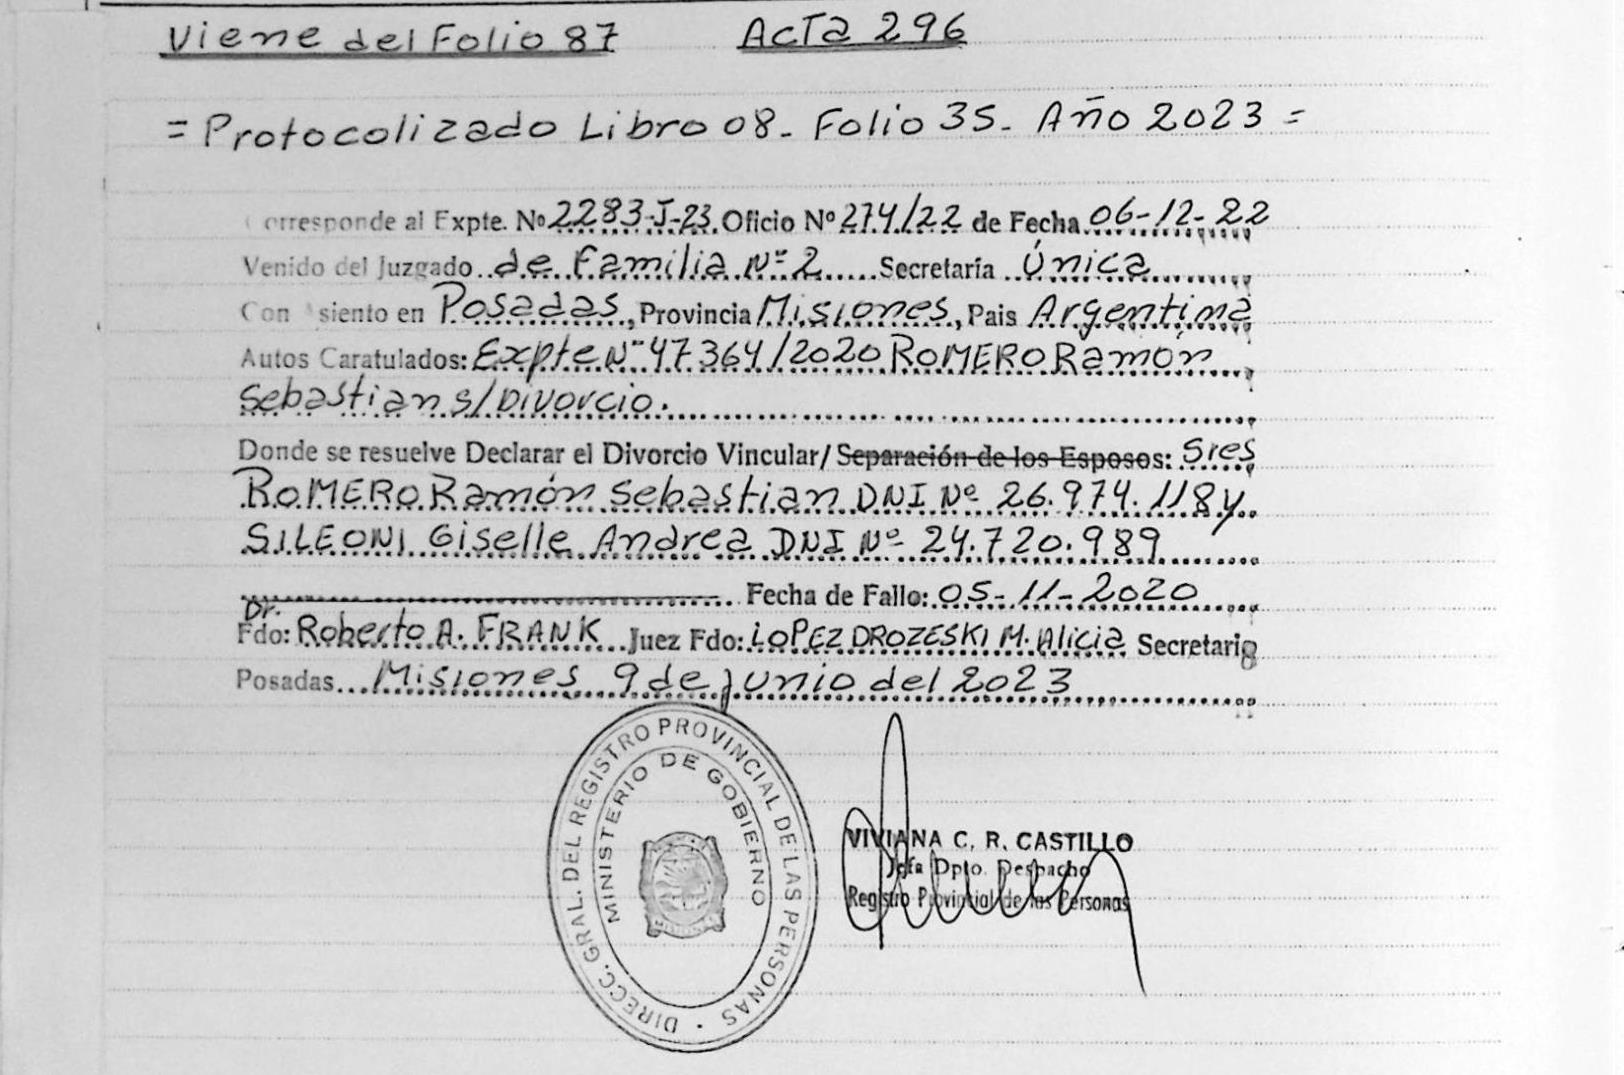 Viene del Folio 87 Acta 296
= Protocolizado Libro 08- Folio 35- Año 2023 =
Corresponde al Expte. Nº 2283-J-23. Oficio Nº 274/22 de Fecha 06-12-22
Venido del Juzgado de Familia Nº 2 Secretaría Única
Con Asiento en Posadas, Provincia Misiones, Pais Argentina
Autos Caratulados: Expte Nº 47364/2020 ROMERO Ramón
Sebastian s/Divorcio.
Donde se resuelve Declarar el Divorcio Vincular/ Separación de los Esposos: Sres
ROMERO Ramón Sebastian DNI Nº 26.974.118 y
SILEONI Giselle Andrea DNI Nº 24.720.989
Fecha de Fallo: 05-11-2020
Dr.
Fdo: Roberto A. FRANK Juez Fdo: LOPEZ DROZESKI M. Alicia Secretario
Posadas Misiones 9 de junio del 2023
DIRECC. GRAL. DEL REGISTRO PROVINCIAL DE LAS PERSONAS ·
MINISTERIO DE GOBIERNO
VIVIANA C. R. CASTILLO
Jefa Dpto. Despacho
Registro Provincial de las Personas